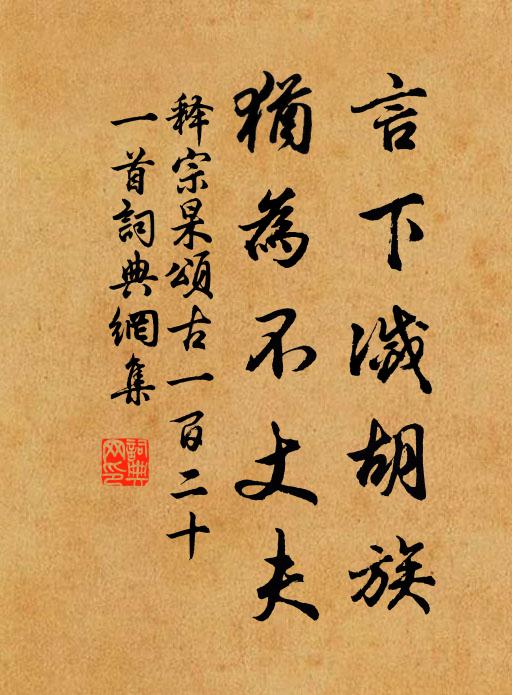 言下滅胡族
猶為不丈夫
释宗杲頌古一百二十
一首詞典網集
詞典網印